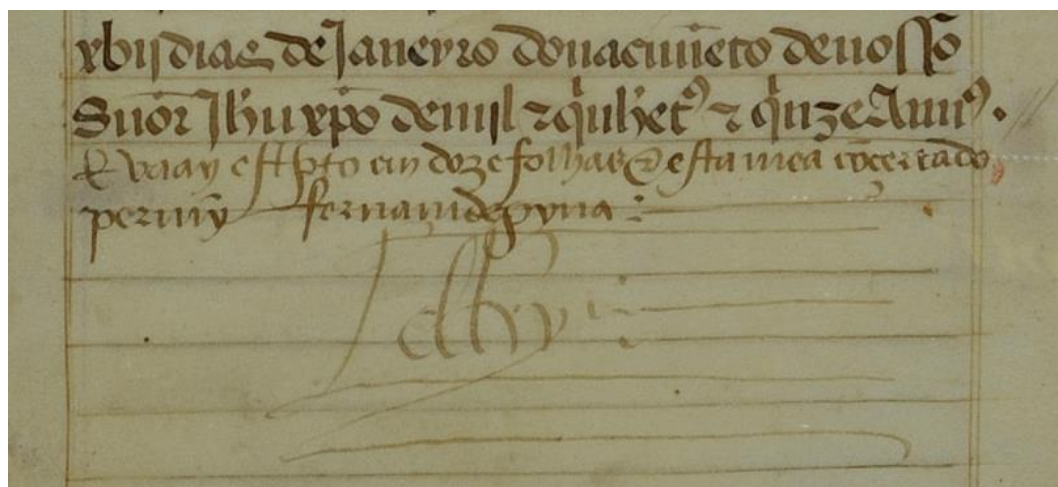 xbij dias de Janeyro do naçimẽto de nosso
Snõr Jhũ xpõ de mil ⁊ qͥnhẽtꝰ ⁊ qͥnze Annꝰ.
E vaay esƥto em doze folhas cõ esta mea cõcertado
per mỹ fernam de pyna :